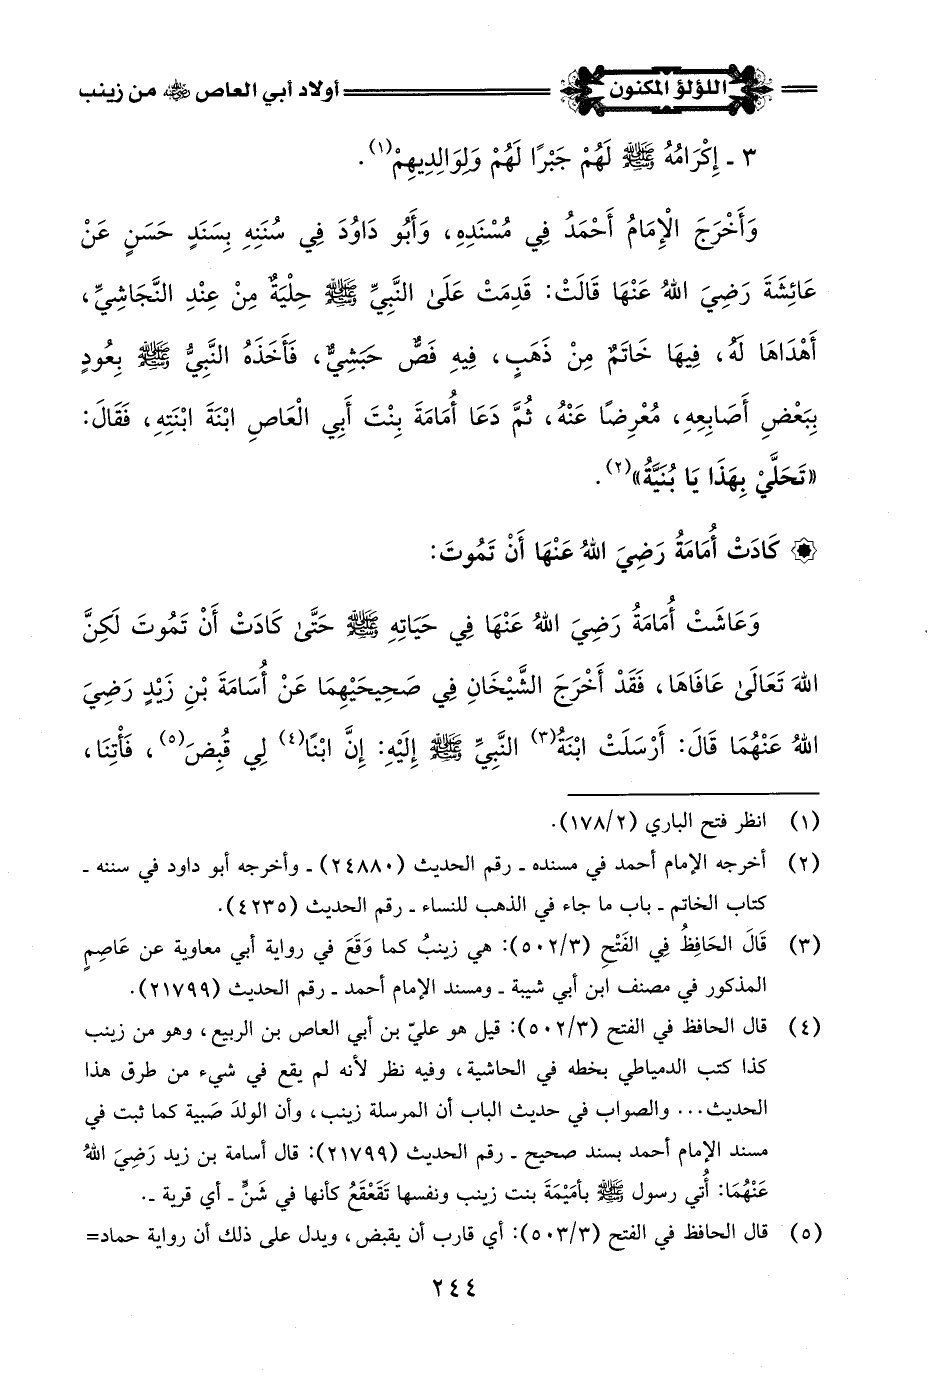 اللؤلؤ المكنون أولاد أبي العاص ﷺ من زينب
٣ ـ إِكْرَامُهُ ﷺ لَهُمْ جَبْرًا لَهُمْ وَلِوَالِدِيهِمْ(١).
وَأَخْرَجَ الْإِمَامُ أَحْمَدُ فِي مُسْنَدِهِ، وَأَبُو دَاوُدَ فِي سُنَنِهِ بِسَنَدٍ حَسَنٍ عَنْ
عَائِشَةَ رَضِيَ اللهُ عَنْهَا قَالَتْ: قَدِمَتْ عَلَىٰ النَّبِيِّ ﷺ حِلْيَةٌ مِنْ عِنْدِ النَّجَاشِيِّ،
أَهْدَاهَا لَهُ، فِيهَا خَاتَمٌ مِنْ ذَهَبٍ، فِيهِ فَصٌّ حَبَشِيٌّ، فَأَخَذَهُ النَّبِيُّ ﷺ بِعُودٍ
بِبَعْضِ أَصَابِعِهِ، مُعْرِضًا عَنْهُ، ثُمَّ دَعَا أُمَامَةَ بِنْتَ أَبِي الْعَاصِ ابْنَةَ ابْنَتِهِ، فَقَالَ:
«تَحَلَّيْ بِهَذَا يَا بُنَيَّةُ»(٢).
كَادَتْ أُمَامَةُ رَضِيَ اللهُ عَنْهَا أَنْ تَمُوتَ:
وَعَاشَتْ أُمَامَةُ رَضِيَ اللهُ عَنْهَا فِي حَيَاتِهِ ﷺ حَتَّىٰ كَادَتْ أَنْ تَمُوتَ لَكِنَّ
اللهَ تَعَالَىٰ عَافَاهَا، فَقَدْ أَخْرَجَ الشَّيْخَانِ فِي صَحِيحَيْهِمَا عَنْ أُسَامَةَ بْنِ زَيْدٍ رَضِيَ
اللهُ عَنْهُمَا قَالَ: أَرْسَلَتْ ابْنَةُ(٣) النَّبِيِّ ﷺ إِلَيْهِ: إِنَّ ابْنًا(٤) لِي قُبِضَ(٥)، فَأْتِنَا،
(١) انظر فتح الباري (١٧٨/٢).
(٢) أخرجه الإمام أحمد في مسنده ـ رقم الحديث (٢٤٨٨٠) ـ وأخرجه أبو داود في سننه ـ
كتاب الخاتم ـ باب ما جاء في الذهب للنساء ـ رقم الحديث (٤٢٣٥).
(٣) قَالَ الحَافِظُ فِي الفَتْحِ (٥٠٢/٣): هي زينبُ كما وَقَعَ في رواية أبي معاوية عن عَاصِمٍ
المذكور في مصنف ابن أبي شيبة ـ ومسند الإمام أحمد ـ رقم الحديث (٢١٧٩٩).
(٤) قال الحافظ في الفتح (٥٠٢/٣): قيل هو عليّ بن أبي العاص بن الربيع، وهو من زينب
كذا كتب الدمياطي بخطه في الحاشية، وفيه نظر لأنه لم يقع في شيء من طرق هذا
الحديث... والصواب في حديث الباب أن المرسلة زينب، وأن الولدَ صَبية كما ثبت في
مسند الإمام أحمد بسند صحيح ـ رقم الحديث (٢١٧٩٩): قال أسامة بن زيد رَضِيَ اللهُ
عَنْهُمَا: أُتي رسول ﷺ بأمَيْمَةَ بنت زينب ونفسها تَقَعْقَعُ كأنها في شَنٍّ ـ أي قربة ـ.
(٥) قال الحافظ في الفتح (٥٠٣/٣): أي قارب أن يقبض، ويدل على ذلك أن رواية حماد=
٢٤٤